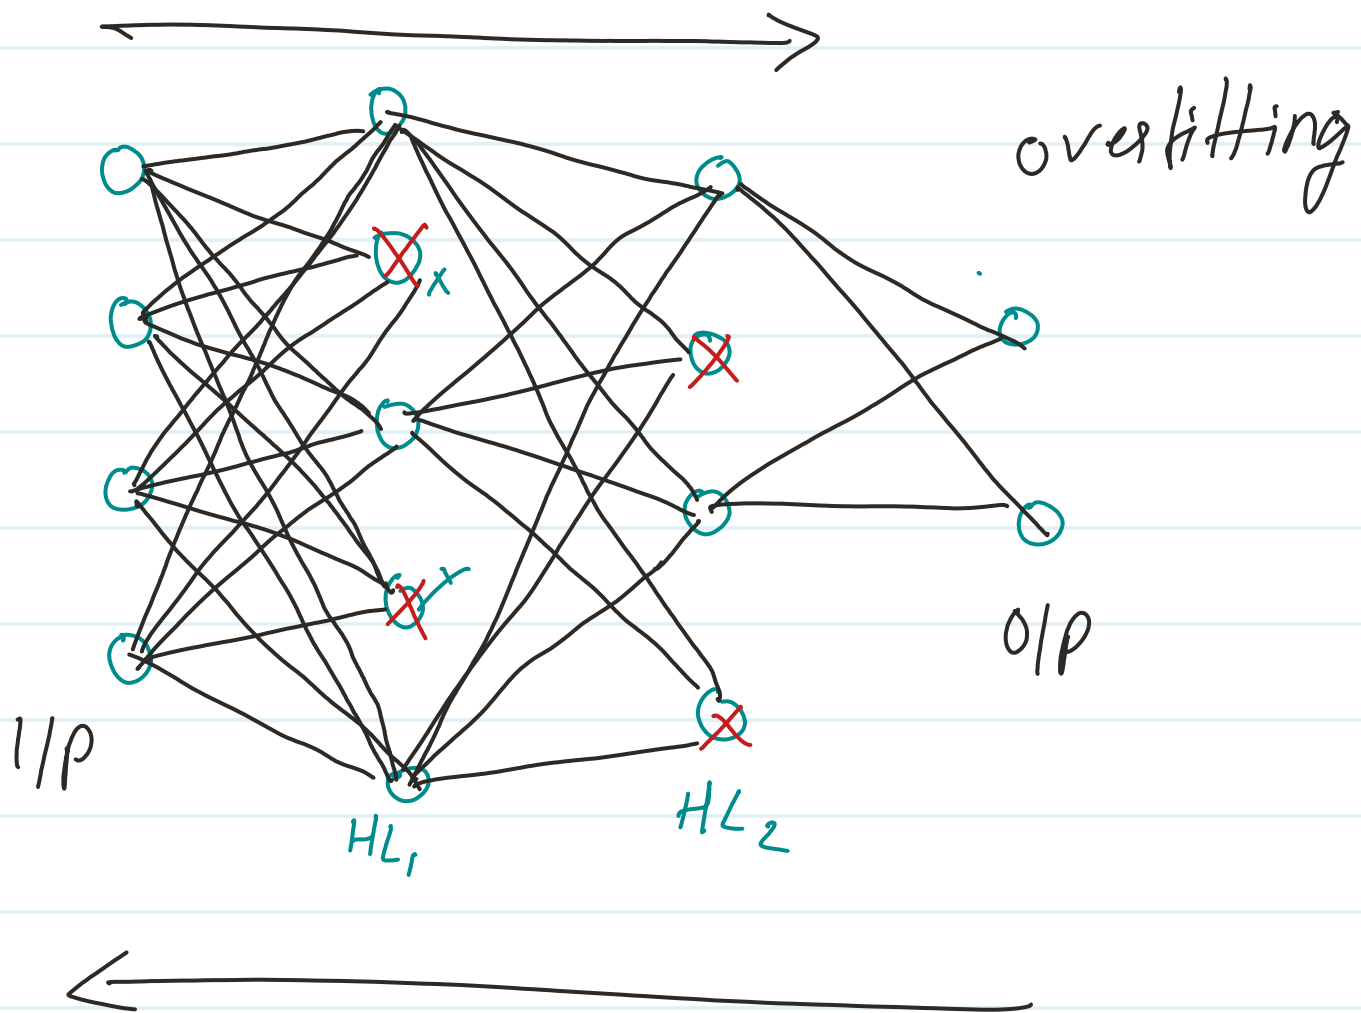 overfitting
x
x
O/P
I/P
HL1
HL2